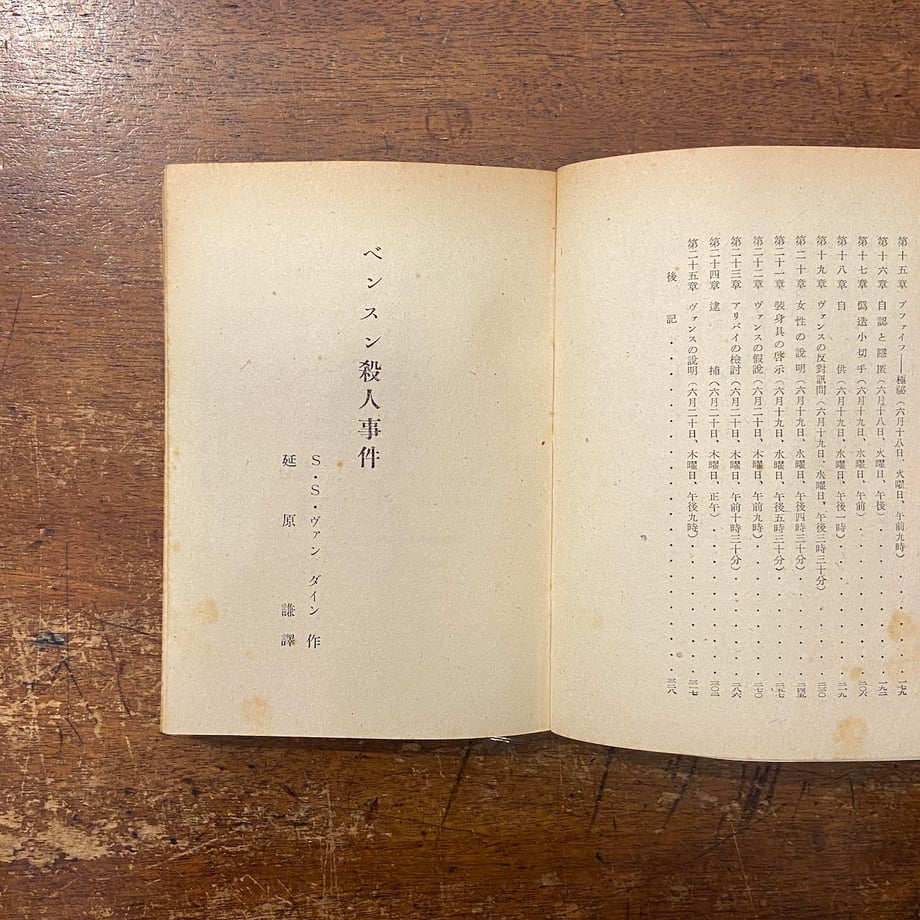 第十五章 プファイフ——極祕(六月十八日、火曜日、午前九時)・・・・・一七九
第十六章 自認と隱匿(六月十八日、火曜日、午後)・・・・・・・一九二
第十七章 僞造小切手(六月十九日、水曜日、午前)・・・・・・・二〇六
第十八章 自供(六月十九日、水曜日、午後一時)・・・・・・・二一九
第十九章 ヴァンスの反對訊問(六月十九日、水曜日、午後三時三十分)・・・・二三〇
第二十章 女性の說明(六月十九日、水曜日、午後四時三十分)・・・・・二四五
第二十一章 裝身具の啓示(六月十九日、水曜日、午後五時三十分)・・・・・二五七
第二十二章 ヴァンスの假說(六月二十日、木曜日、午前九時)・・・・・・二七〇
第二十三章 アリバイの檢討(六月二十日、木曜日、午前十時三十分)・・・・・二八六
第二十四章 逮捕(六月二十日、木曜日、正午)・・・・・・・・三〇三
第二十五章 ヴァンスの說明(六月二十日、木曜日、午後九時)・・・・・・三一七
後記・・・・・・・・・・・・・・・・三二八
ベンスン殺人事件
S・S・ヴァン ダイン 作
延原謙譯